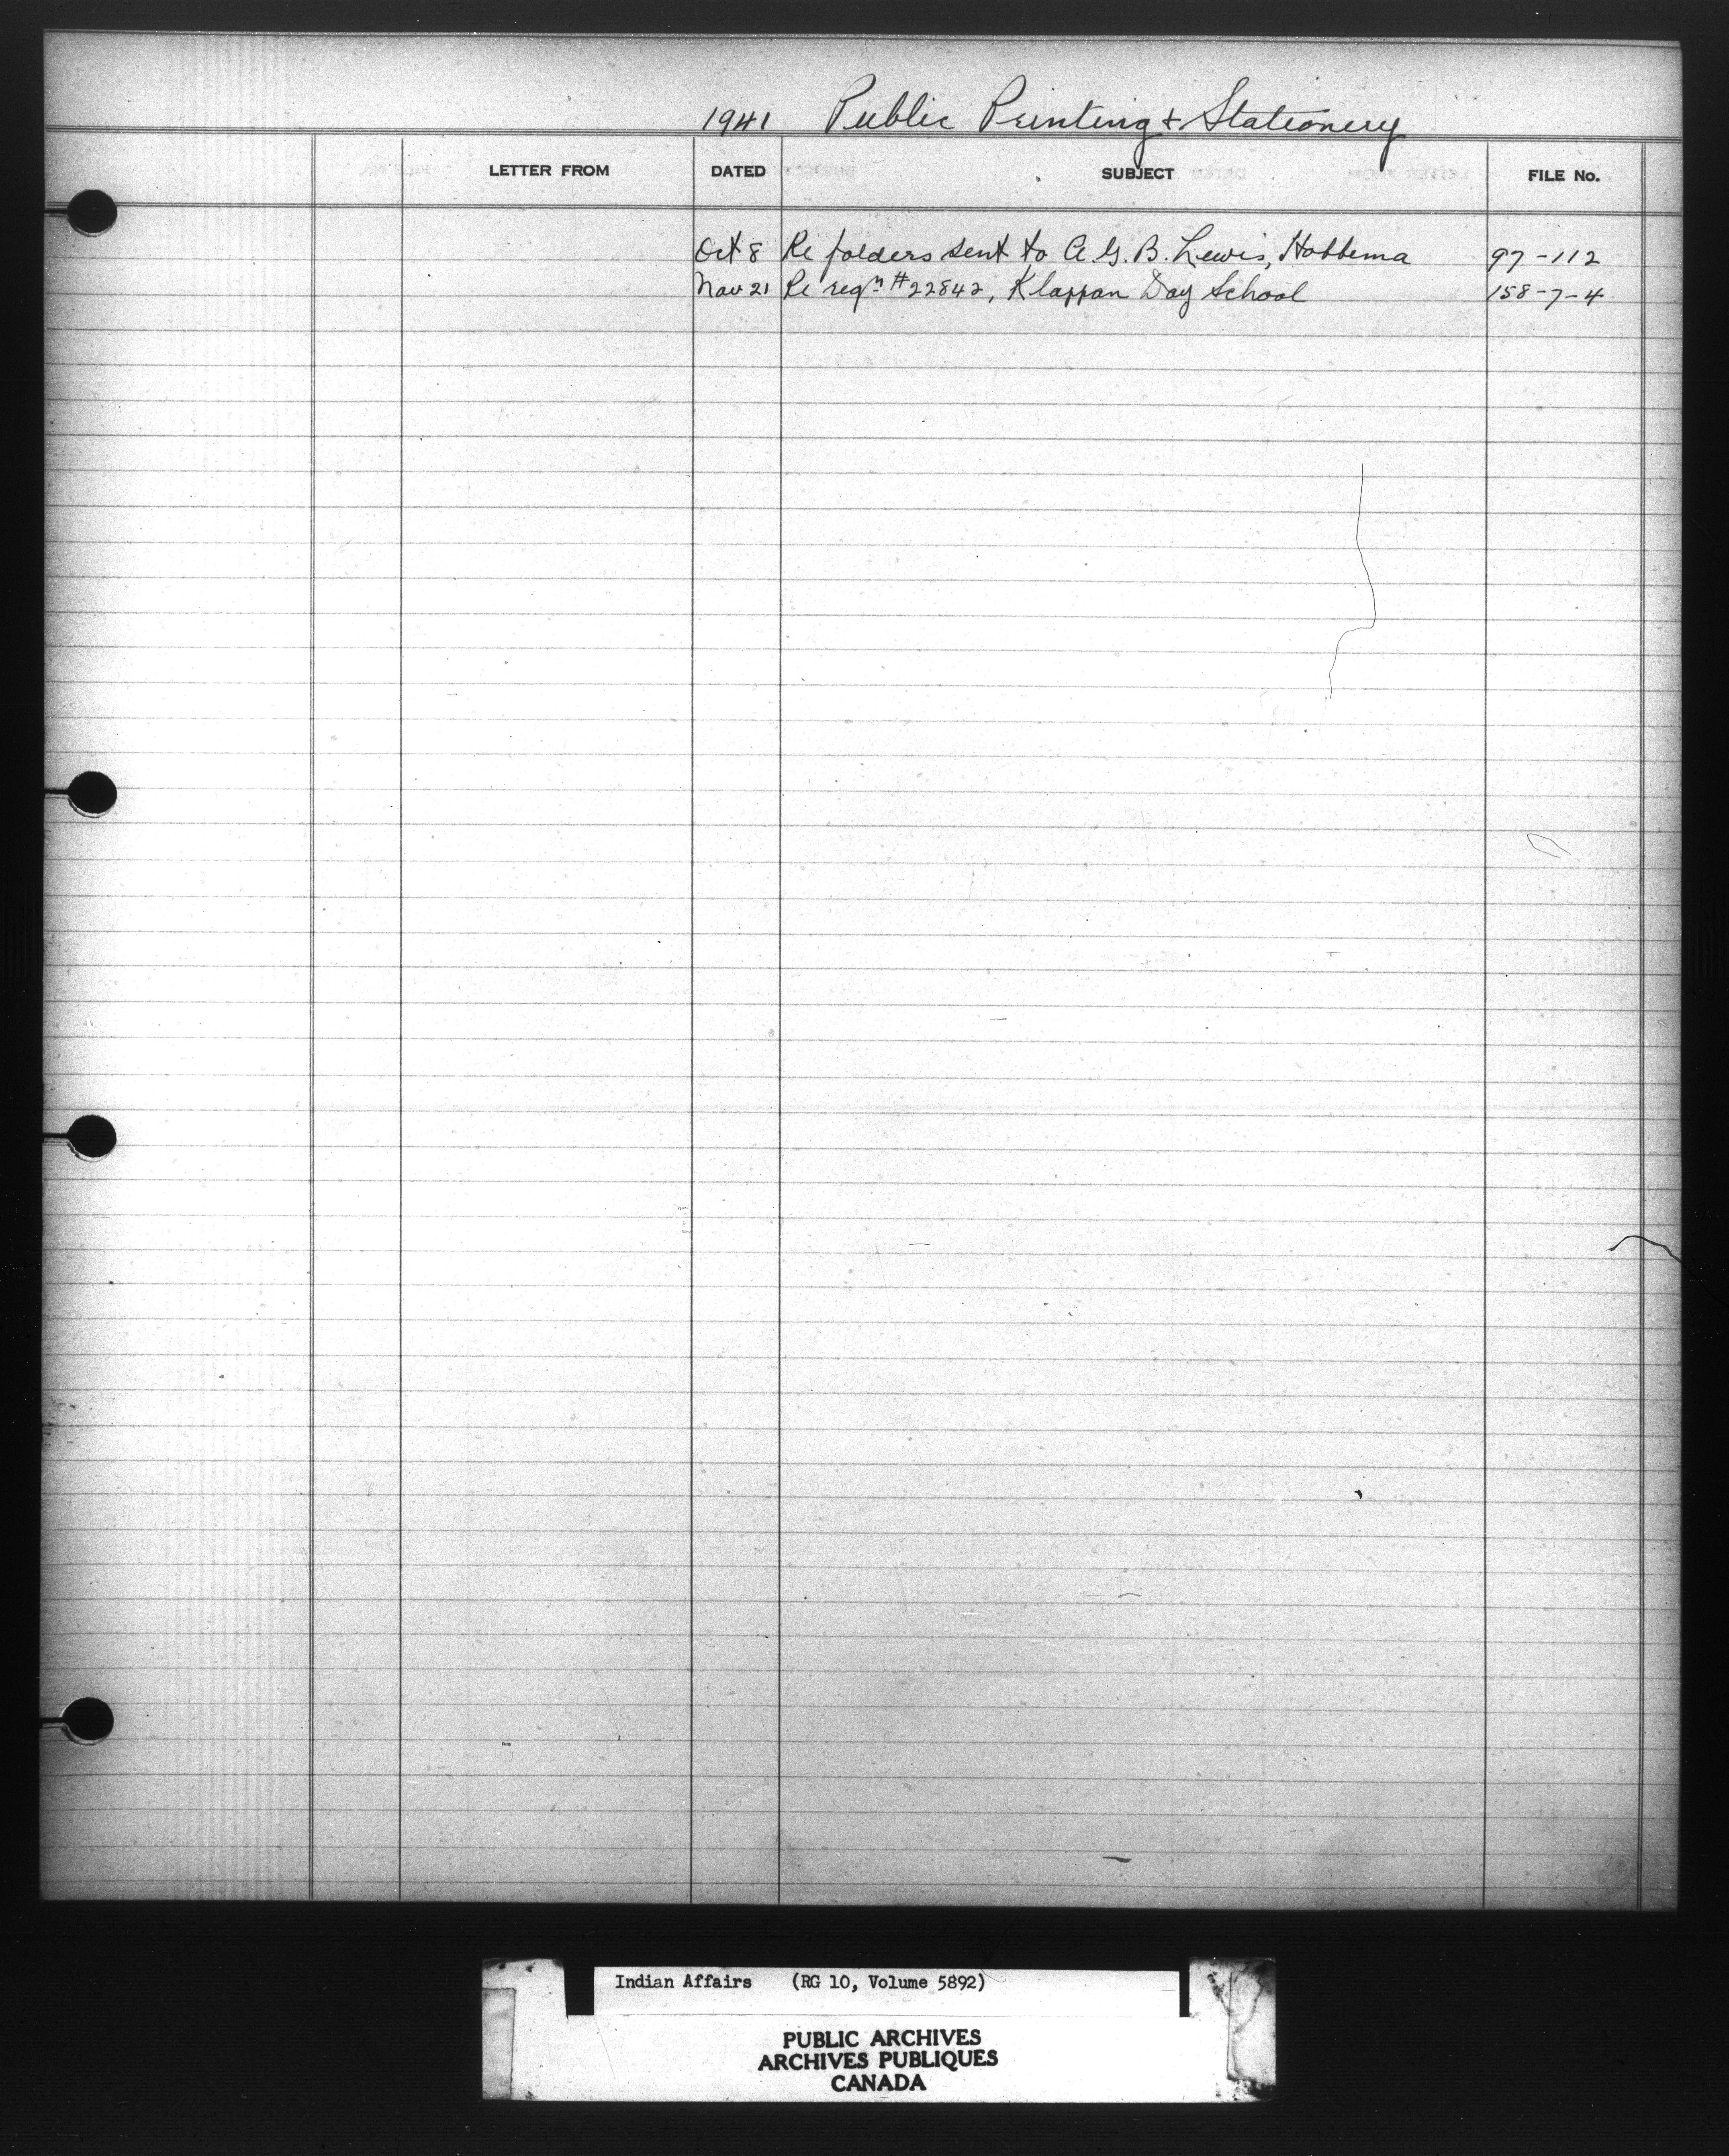 1941 Public Printing & Stationery
LETTER FROM DATED SUBJECT FILE No.
Oct 8 Re folders sent to A. G. B. Lewis, Hobbema 97-112
Nov 21 Re reqn #22842, Klappan Day School 158-7-4
Indian Affairs (RG 10, Volume 5892)
PUBLIC ARCHIVES
ARCHIVES PUBLIQUES
CANADA